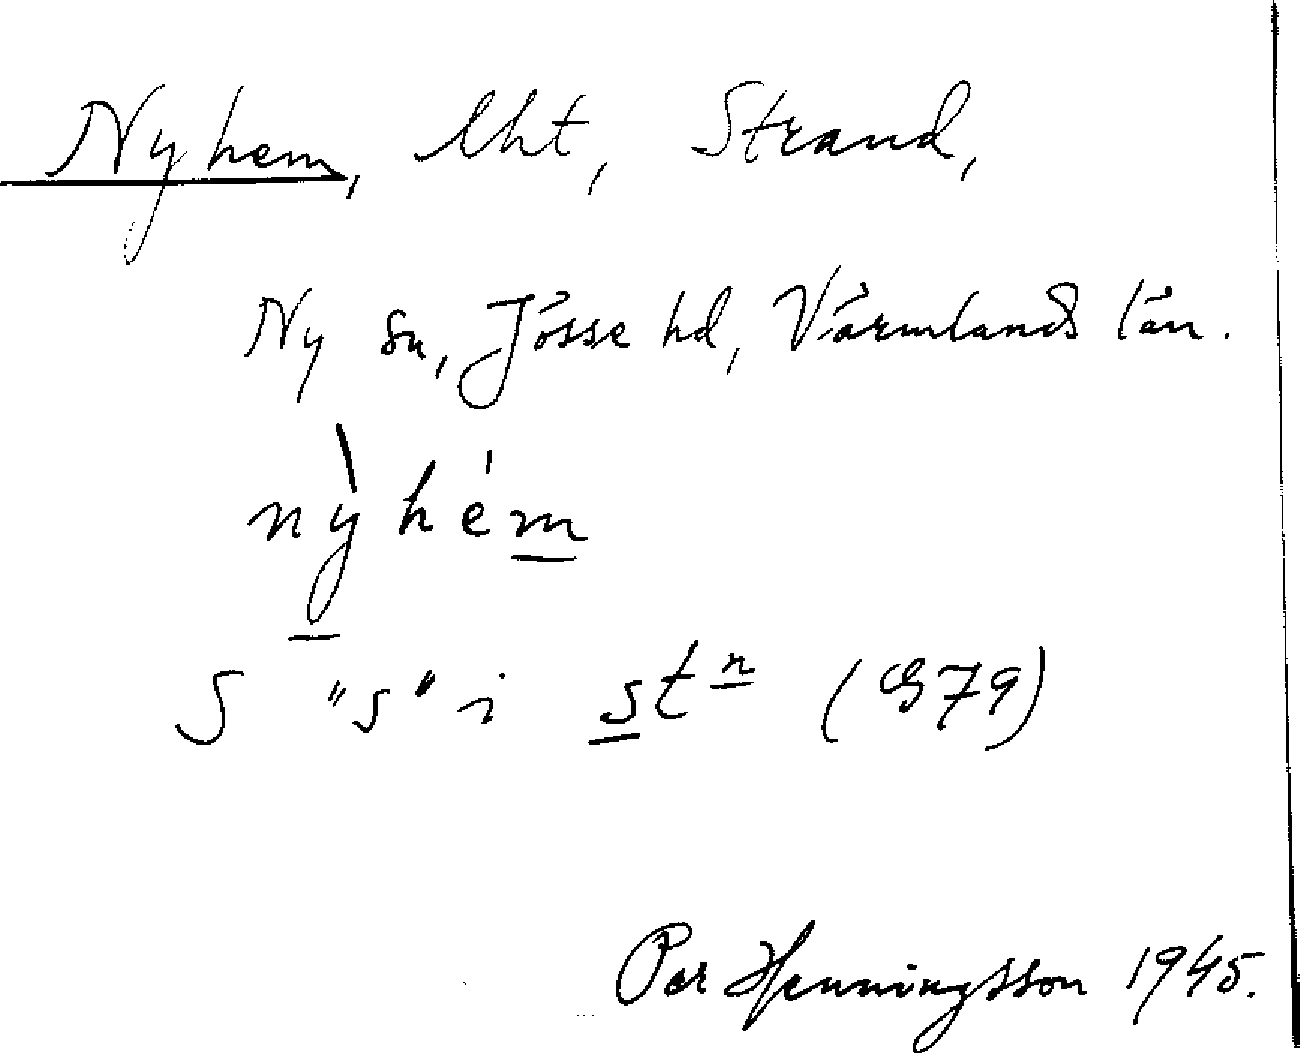 Nyhem, lht, Strand,
Ny sn, Jösse hd, Värmlands län.
nỳhém
S "s" i stn (S79)
Per Henningsson 1945.